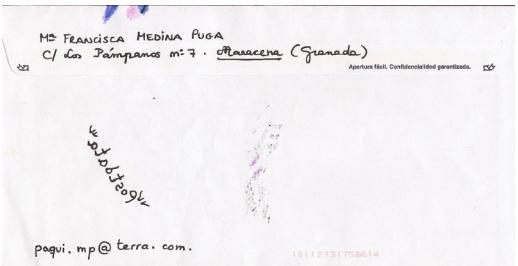 Mª FRANCISCA MEDINA PUGA
C/ Los Pámpanos nº 7. Maracena (Granada)
Apertura fácil. Confidencialidad garantizada.
paqui.mp@terra.com.
18112731758614